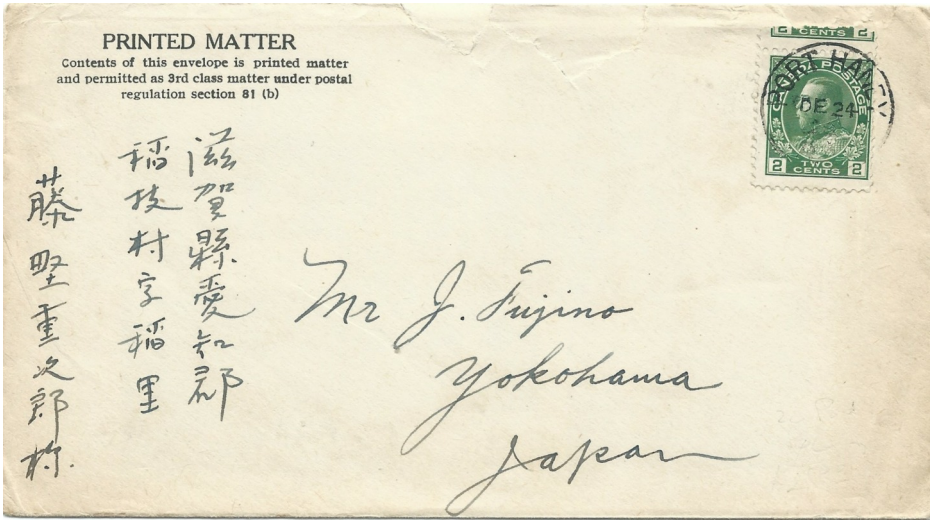 PRINTED MATTER
Contents of this envelope is printed matter
and permitted as 3rd class matter under postal
regulation section 81 (b)
2 CENTS 2
CANADA POSTAGE
2 TWO CENTS 2
PORT HANEY
DE 24
滋賀縣愛知郡
稲枝村字稲里
藤野重次郎様
Mr J. Fujino
Yokohama
Japan